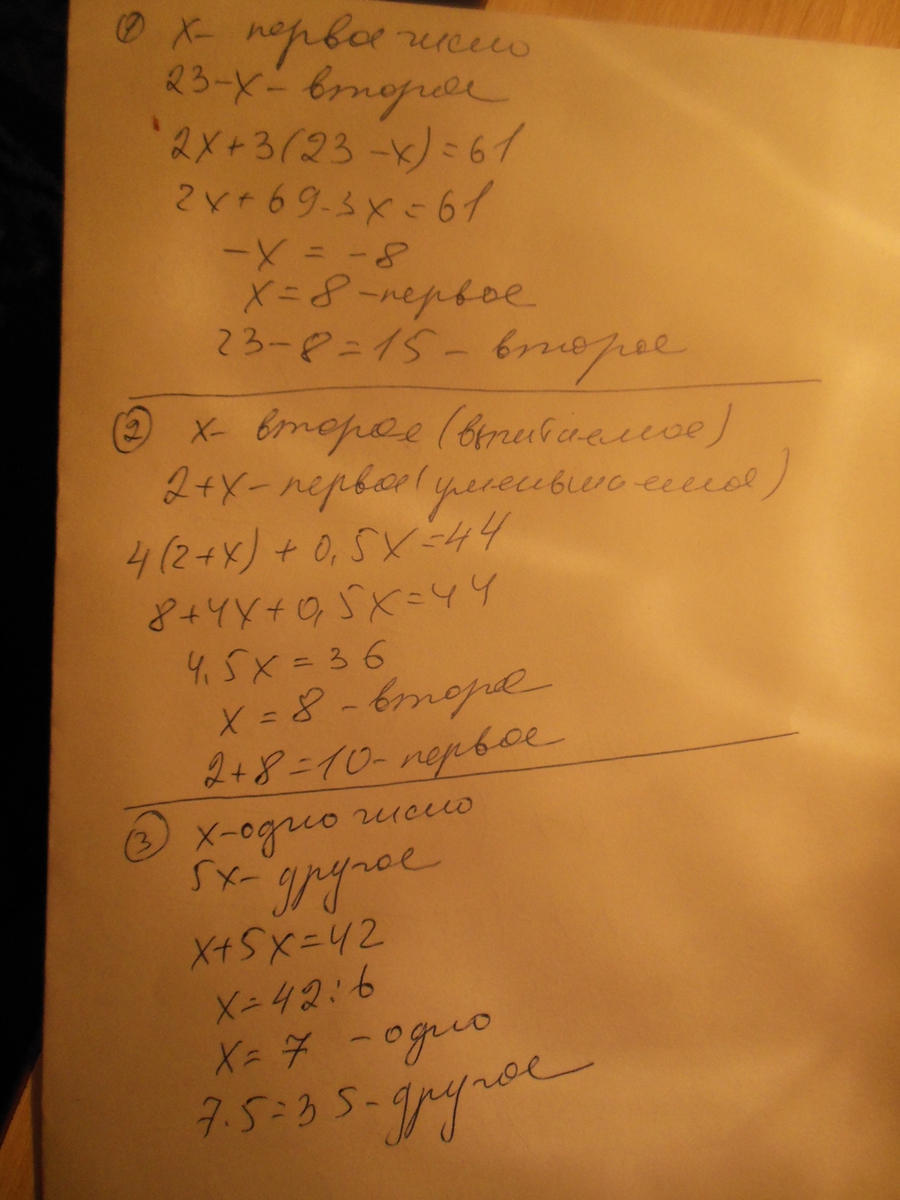 ① x- первое число
23-x- второе
2x+3(23-x)=61
2x+69-3x=61
-x = -8
x=8-первое
23-8=15- второе
② x- второе (вычитаемое)
2+x-первое(уменьшаемое)
4(2+x)+0,5x=44
8+4x+0,5x=44
4,5x=36
x=8-второе
2+8=10-первое
③ x-одно число
5x- другое
x+5x=42
x=42:6
x=7 -одно
7·5=35-другое